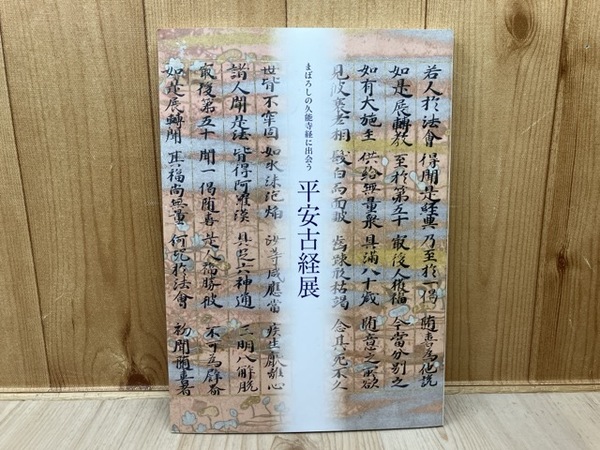 若人於法會 得聞是経典 乃至於一偈 随喜為他説
如是展轉教 至於第五十 最後人獲福 今當分別之
如有大施主 供給無量衆 具滿八十歳 随意之所欲
見彼衰老相 髮白而面皺 齒踈形枯竭 念其死不久
まぼろしの久能寺経に出会う
平安古経展
世皆不牢固 如水沫泡焔 汝等咸應當 疾生厭離心
諸人聞是法 皆得阿羅漢 具足六神通 三明八解脱
最後第五十 聞一偈随喜 是人福勝彼 不可為譬喩
如是展轉聞 其福尚無量 何況於法會 初聞随喜者